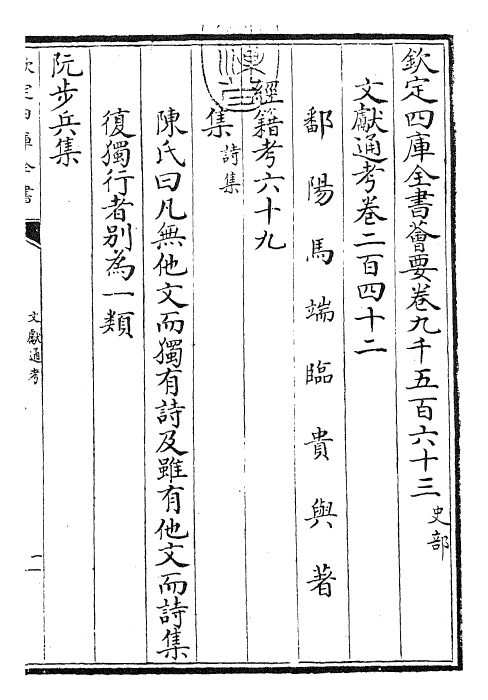 欽定四庫全書薈要卷九千五百六十三 史部
文獻通考卷二百四十二
鄱陽馬端臨貴與著
經籍考六十九
集 詩集
陳氏曰凡無他文而獨有詩及雖有他文而詩集
復獨行者别為一類
阮步兵集
欽定四庫全書
文獻通考